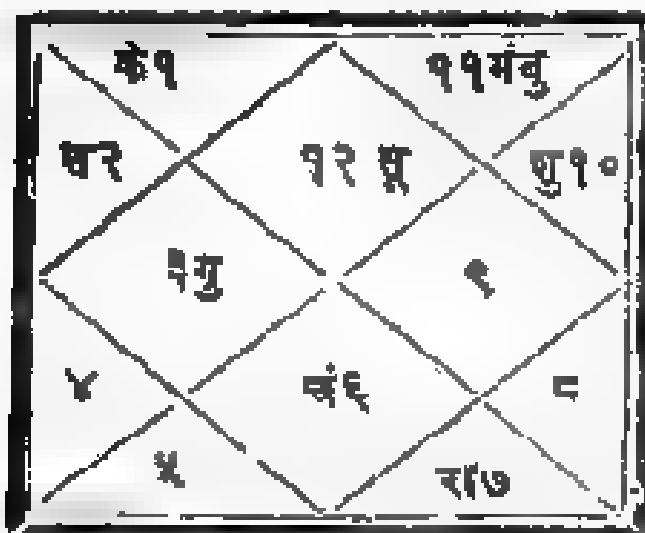 के१
११मंबु
श२
१२ सू
शु१०
३गु
९
४
चं६
८
५
रा७